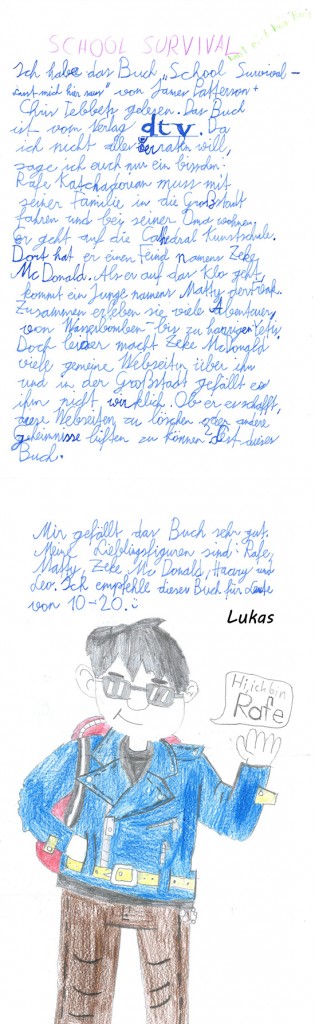 SCHOOL SURVIVAL
Ich habe das Buch „School Survival –
Lasst mich hier raus" von James Patterson +
Chris Tebbetz gelesen. Das Buch
ist vom Verlag dtv. Da
ich nicht alles verraten will,
sage ich euch nur ein bisschen:
Rafe Katchadorian muss mit
seiner Familie in die Großstadt
fahren und bei seiner Oma wohnen.
Er geht auf die Cathedral Kunstschule.
Dort hat er einen Feind namens Zeke
McDonald. Als er auf das Klo geht,
kommt ein Junge namens Matty der
Zusammen erleben sie viele Abenteuer,
von Wasserbomben- bis zu
Doch leider macht Zeke McDonald
viele gemeine Webseiten über ihn
und in der Großstadt gefällt es
ihm nicht wirklich. Ob er es schafft,
diese Webseiten zu löschen oder andere
Geheimnisse lüften zu können? Lest dieses
Buch.
Mir gefällt das Buch sehr gut.
Meine Lieblingsfiguren sind: Rafe,
Matty, Zeke Mc Donald, Haary und
Leo. Ich empfehle dieses Buch für Leute
von 10-20. :)
Lukas
Hi, ich bin
Rafe